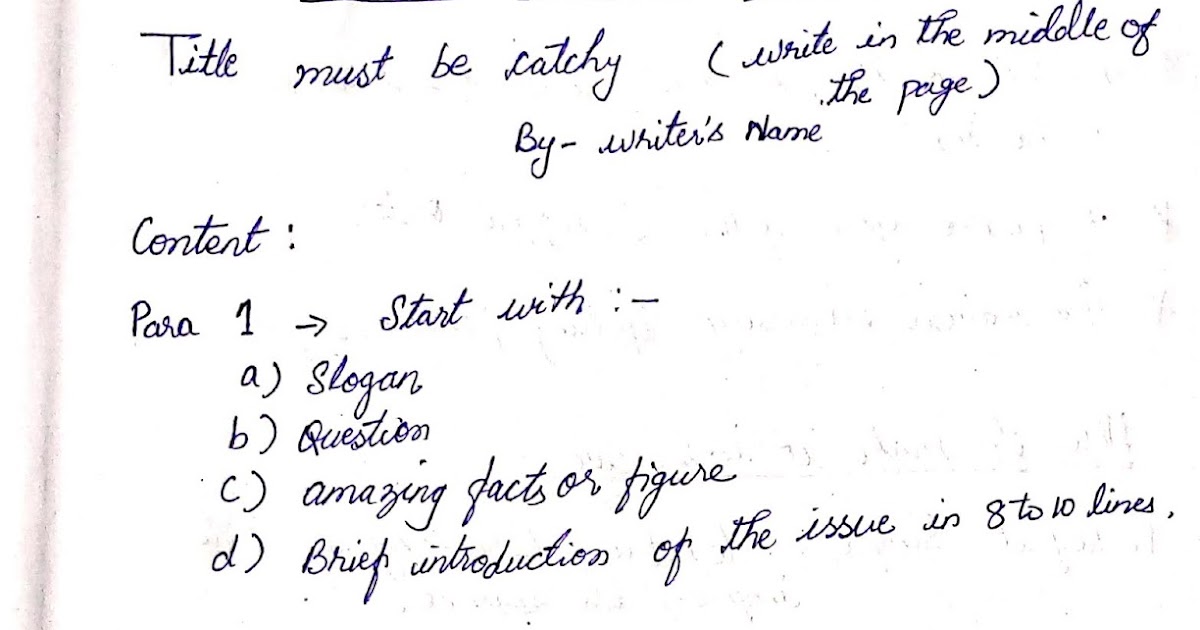 Title must be catchy (write in the middle of
the page)
By- writer's Name
Content :
Para 1 → Start with :-
a) Slogan
b) Question
c) amazing facts or figure
d) Brief introduction of the issue in 8 to 10 lines.